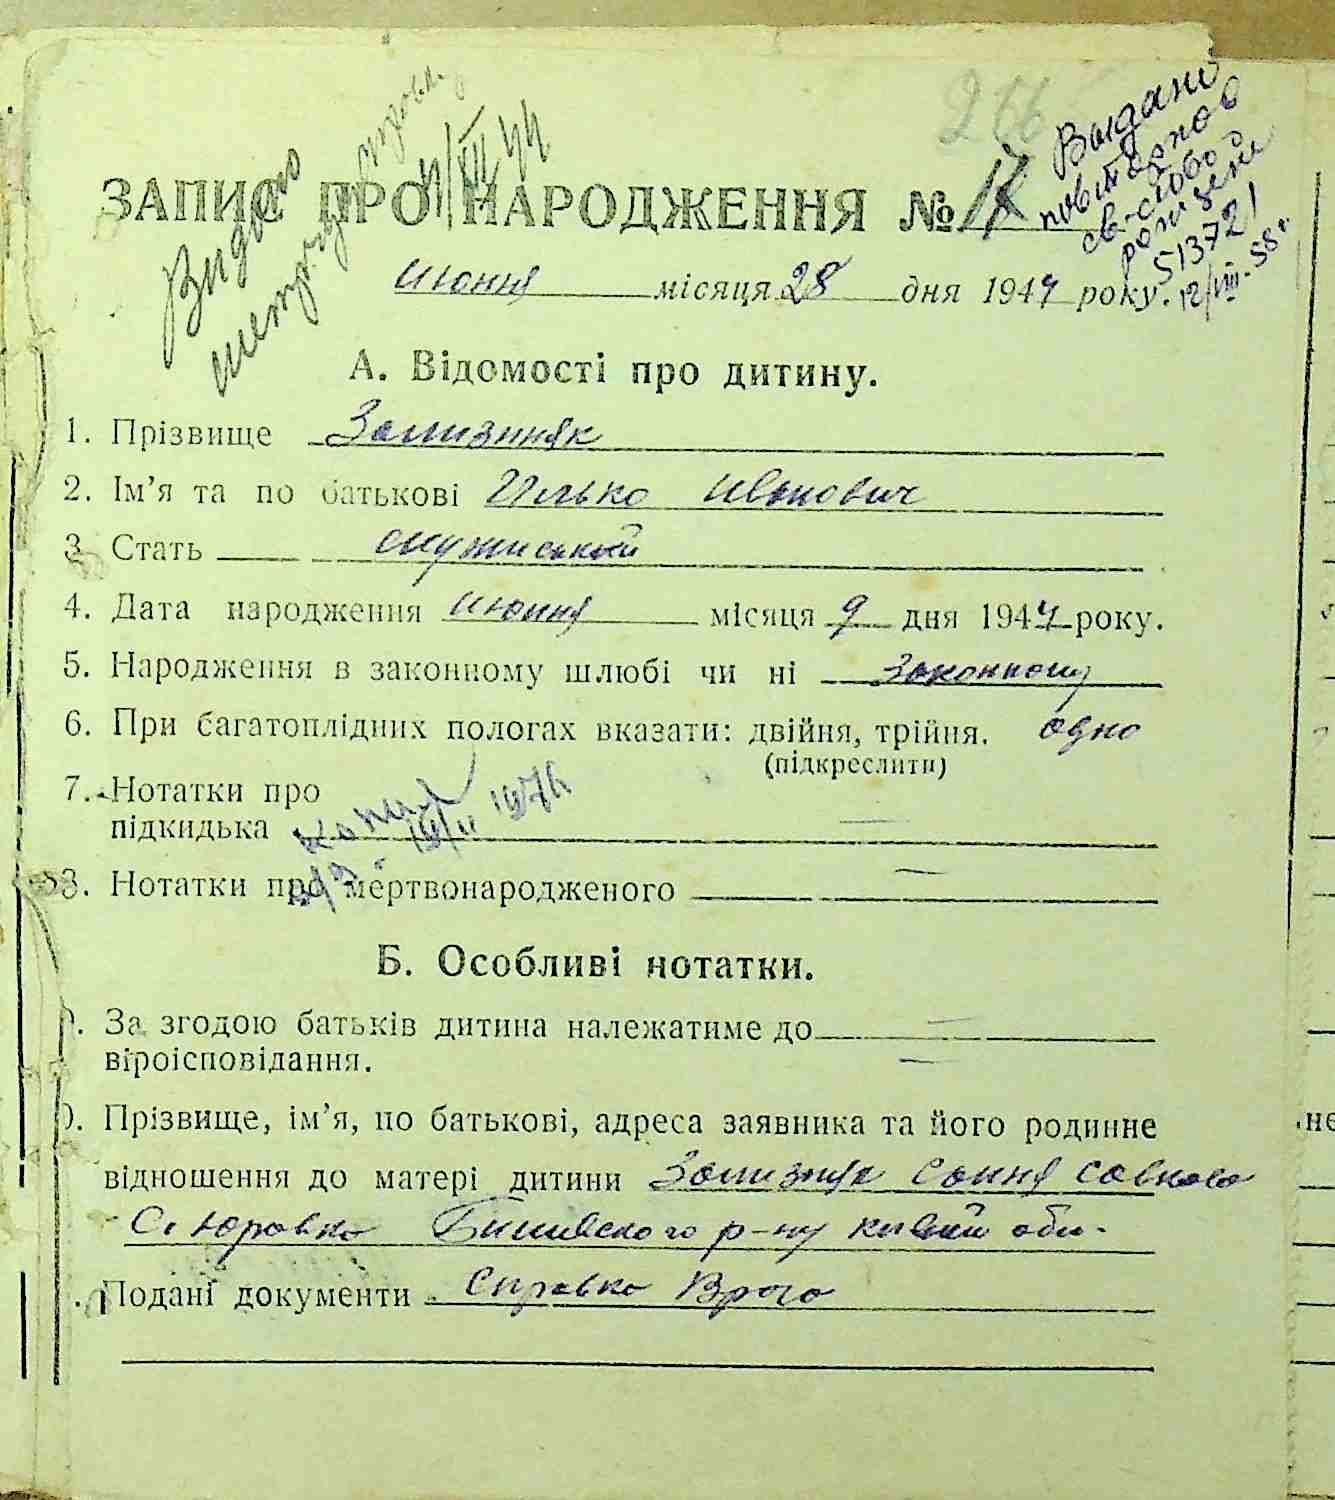 266
Видано
метричну
11/III 44
Выдано
повторнов
св-ство о
рожден
513721
12/VIII-58 г.
ЗАПИС ПРО НАРОДЖЕННЯ № 17
июння місяця 28 дня 1944 року.
А. Відомості про дитину.
1. Прізвище Зализняк
2. Ім’я та по батькові Илько Иванович
3. Стать мужиський
4. Дата народження июння місяця 9 дня 1944 року.
5. Народження в законному шлюбі чи ні законному
6. При багатоплідних пологах вказати: двійня, трійня. одно
(підкреслити)
7. Нотатки про
підкидька —
8. Нотатки про мертвонародженого —
Б. Особливі нотатки.
За згодою батьків дитина належатиме до —
віроісповідання. —
Прізвище, ім’я, по батькові, адреса заявника та його родинне
відношення до матері дитини Зализняк Сання Савковa
С. Юровка р-ну обл.
Подані документи Справка Врача